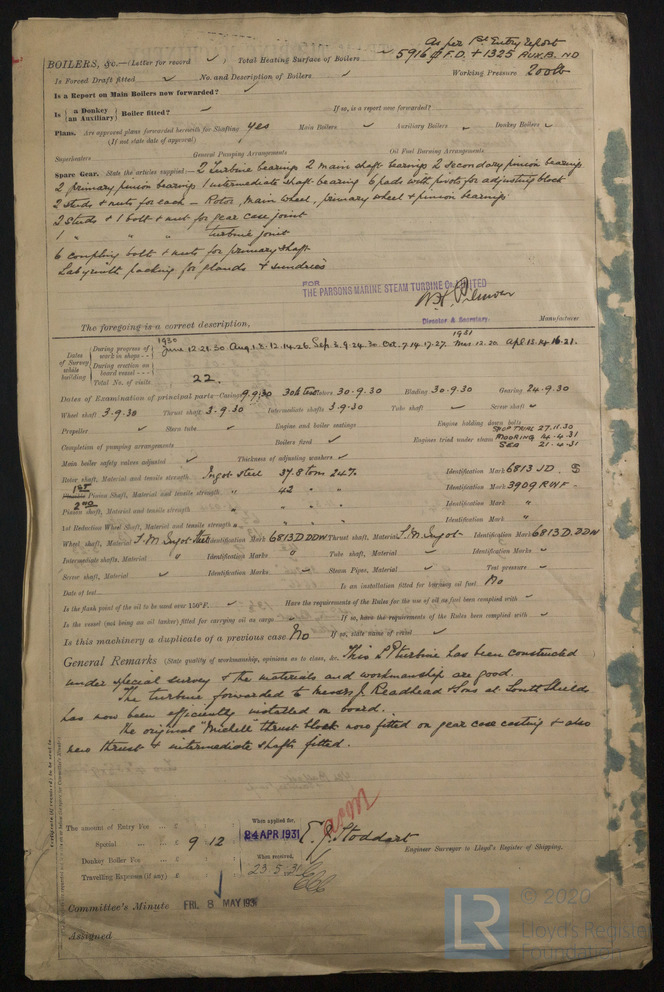 As per 1st Entry Report
BOILERS, &c.—(Letter for record ✓ ; Total Heating Surface of Boilers ✓ 5916 ⌀ F.D. + 1325 AUX.B. ND
Is Forced Draft fitted ✓ No. and Description of Boilers ✓ Working Pressure 200 lb
Is a Report on Main Boilers now forwarded? ✓
Is {a Donkey / an Auxiliary} Boiler fitted? ✓ If so, is a report now forwarded?
Plans. Are approved plans forwarded herewith for Shafting Yes Main Boilers ✓ Auxiliary Boilers ✓ Donkey Boilers ✓
(If not state date of approval)
Superheaters General Pumping Arrangements Oil Fuel Burning Arrangements
Spare Gear. State the articles supplied:— 2 Turbine bearings 2 main shaft bearings 2 secondary pinion bearings
2 primary pinion bearings 1 intermediate shaft bearing 6 pads with pivots for adjusting block
2 studs & nuts for each — Rotor, main wheel, primary wheel & pinion bearings
2 studs & 1 bolt & nut for gear case joint
1 " " " turbine joint
6 coupling bolts & nuts for primary shaft
Labyrinth packing for glands & sundries
FOR
THE PARSONS MARINE STEAM TURBINE Co. LIMITED
Director & Secretary.
The foregoing is a correct description, Manufacturer
1930 1931
Dates of Survey while building
During progress of work in shops - - June 12.21.30 Aug. 1.8.12.14.26 Sep. 3.9.24.30 Oct. 7.14.17.27. Mar. 12.20 Apl. 13.14.16.21.
During erection on board vessel - - -
Total No. of visits 22.
Dates of Examination of principal parts—Casings 9.9.30 Rotors 30.9.30 Blading 30.9.30 Gearing 24.9.30
Wheel shaft 3.9.30 Thrust shaft 3.9.30 Intermediate shafts 3.9.30 Tube shaft ✓ Screw shaft ✓
Propeller ✓ Stern tube ✓ Engine and boiler seatings Engine holding down bolts
Completion of pumping arrangements Boilers fixed ✓ Engines tried under steam SHOP TRIAL 27.11.30
MOORING 14.4.31
SEA 21.4.31
Main boiler safety valves adjusted ✓ Thickness of adjusting washers ✓
Rotor shaft, Material and tensile strength Ingot steel 37.8 tons 24%. Identification Mark 6813 JD. S
1ST Pinion Shaft, Material and tensile strength " 42 " " Identification Mark 3909 RWF.
2ND Pinion shaft, Material and tensile strength " " " " Identification Mark "
1st Reduction Wheel Shaft, Material and tensile strength " " " " Identification Mark "
Wheel shaft, Material S.M. Ingot steel Identification Mark 6813 D.DDN Thrust shaft, Material S.M. Ingot Identification Mark 6813 D.DDN
Intermediate shafts, Material " Identification Marks " Tube shaft, Material ✓ Identification Marks ✓
Screw shaft, Material ✓ Identification Marks ✓ Steam Pipes, Material ✓ Test pressure ✓
Date of test Is an installation fitted for burning oil fuel No
Is the flash point of the oil to be used over 150°F. ✓ Have the requirements of the Rules for the use of oil as fuel been complied with ✓
Is the vessel (not being an oil tanker) fitted for carrying oil as cargo ✓ If so, have the requirements of the Rules been complied with ✓
Is this machinery a duplicate of a previous case No If so, state name of vessel ✓
General Remarks (State quality of workmanship, opinions as to class, &c. This L.P. turbine has been constructed
under special survey & the materials and workmanship are good.
The turbine forwarded to Messrs J. Readhead & Sons at South Shields
has now been efficiently installed on board.
The original "Michell" thrust block now fitted on gear case casting & also
new thrust & intermediate shafts fitted.
The amount of Entry Fee ... £ : : When applied for,
Special ... £ 9 : 12 : 24 APR 1931
E. J. Stoddart
Engineer Surveyor to Lloyd's Register of Shipping.
Donkey Boiler Fee ... £ : : When received,
Travelling Expenses (if any) £ : : 23.5.31
Committee's Minute FRI. 8 MAY 1931
Assigned
© 2020
LR Lloyd's Register
Foundation